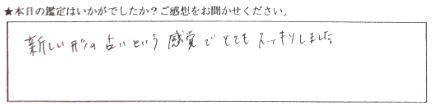 ★本日の鑑定はいかがでしたか？ご感想をお聞かせください。
新しい形の占いという感覚でとてもスッキリしました